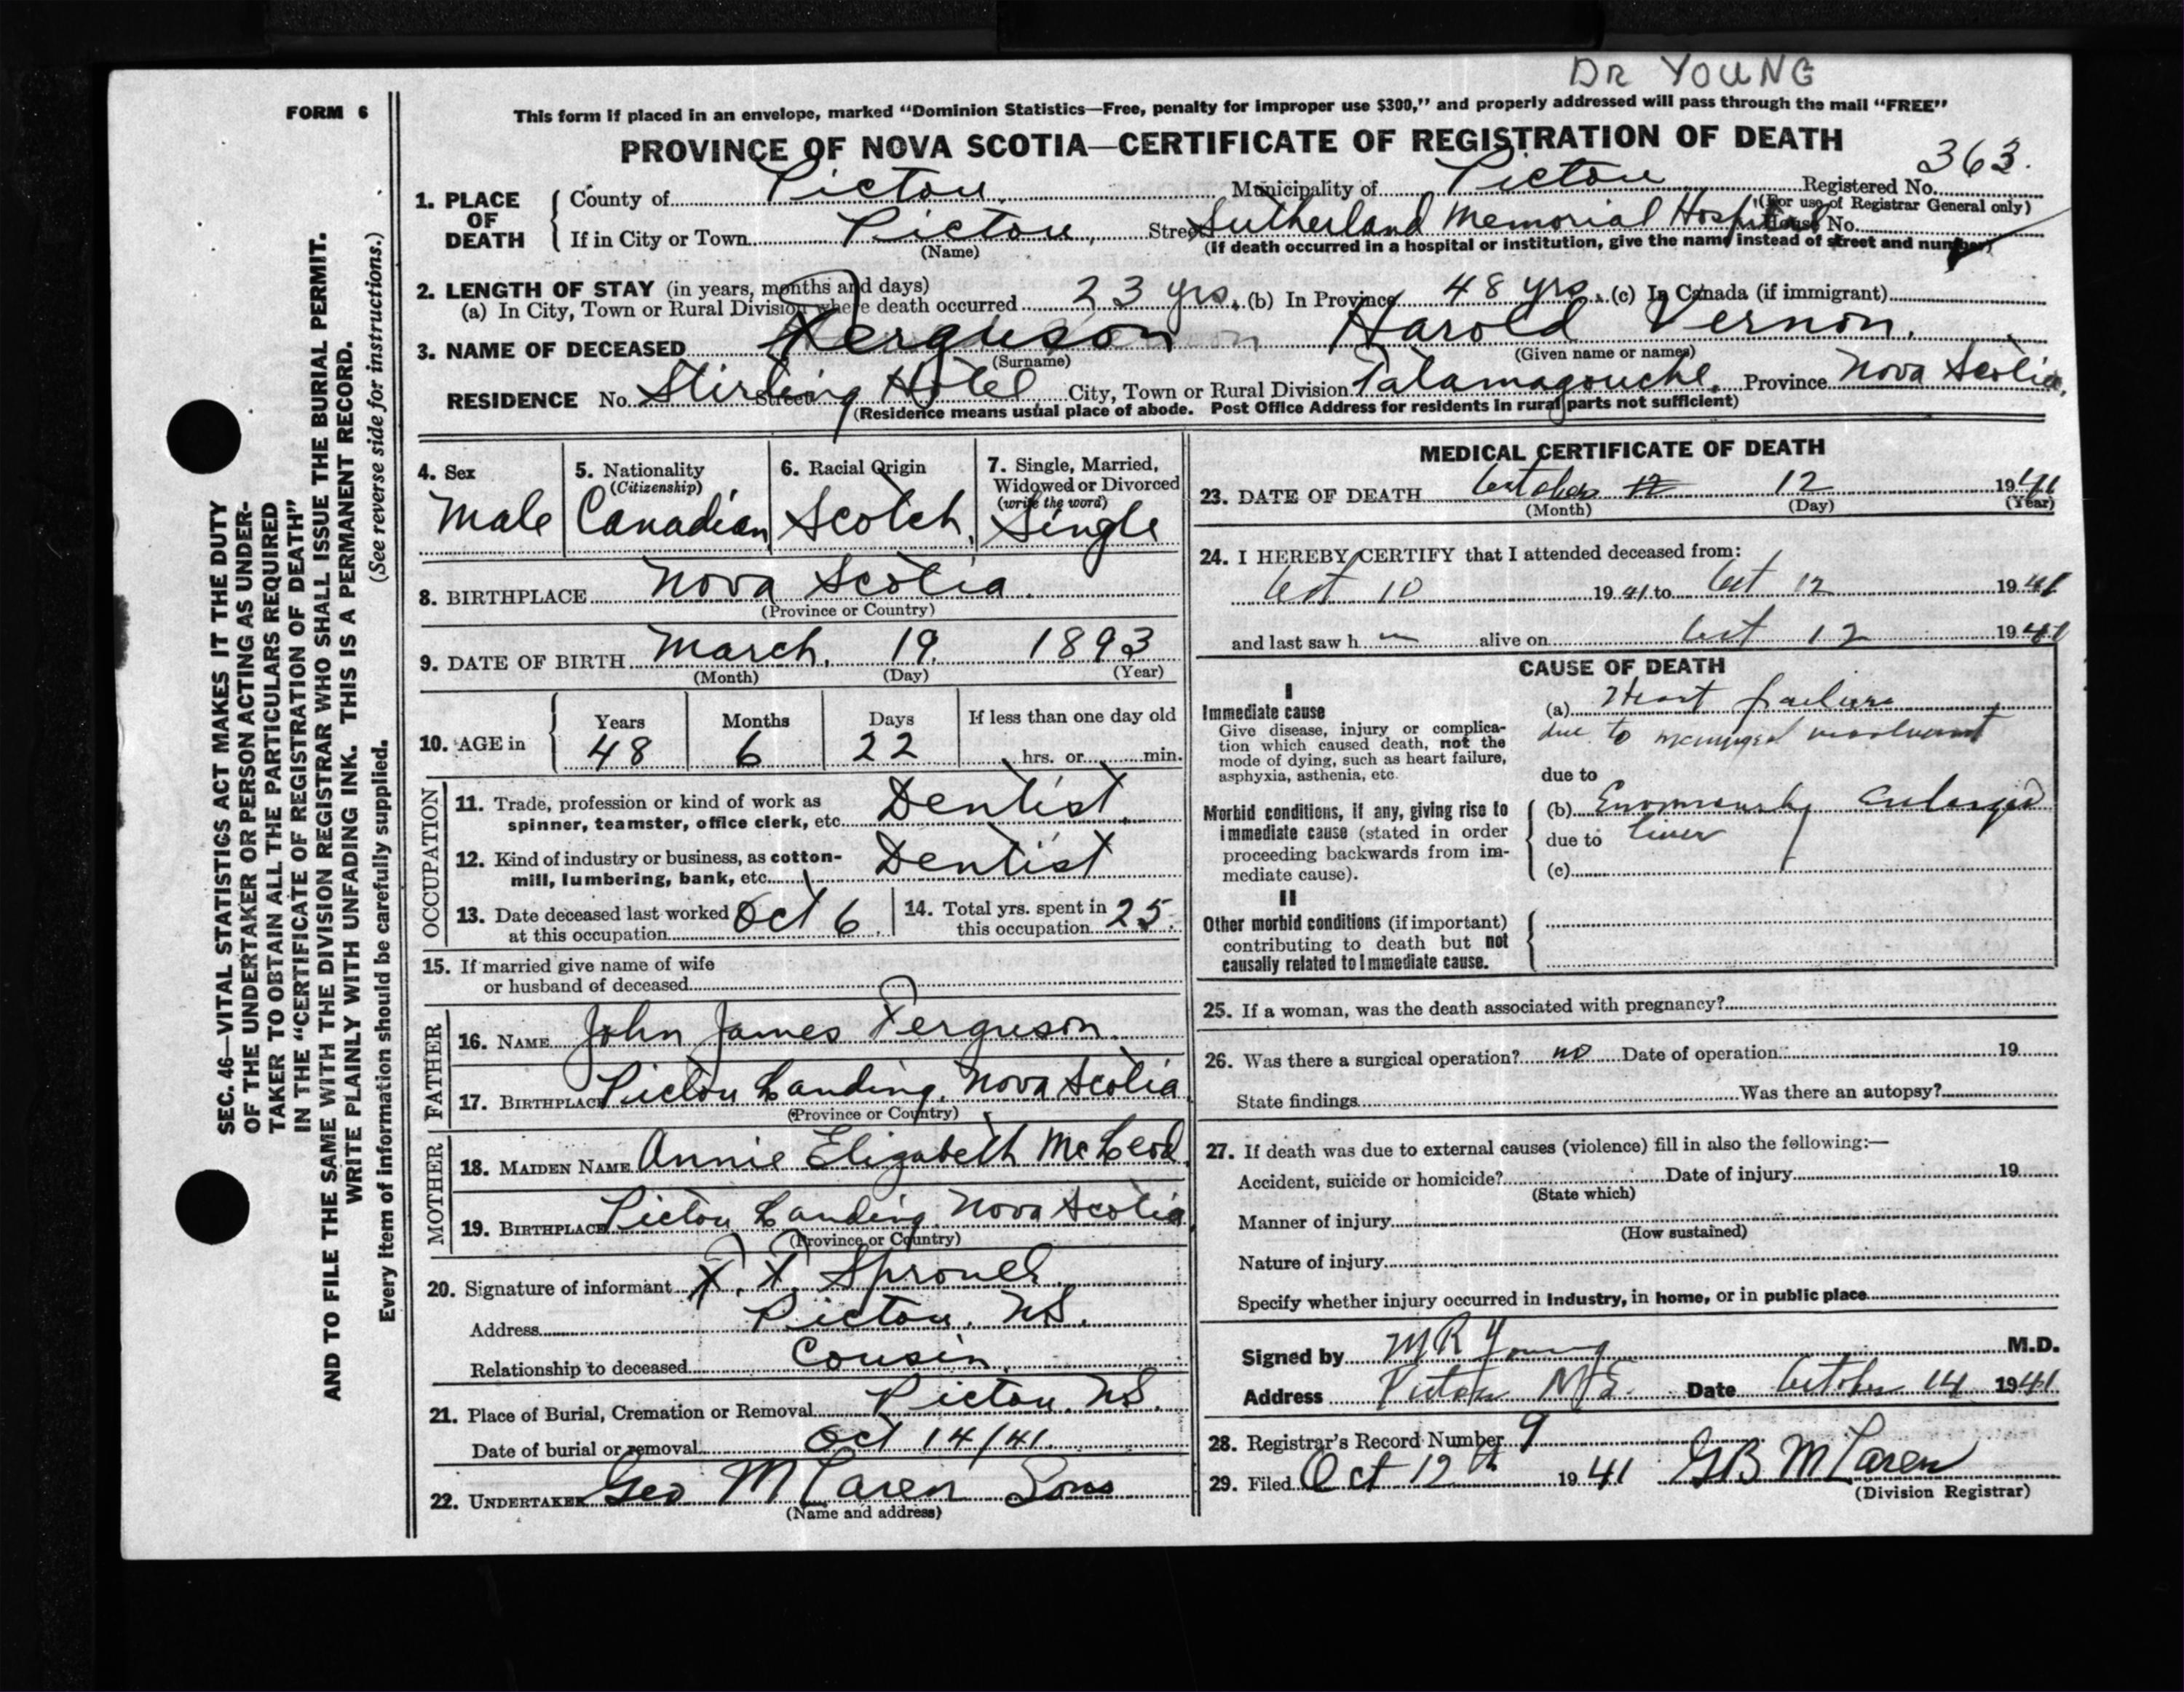 DR YOUNG
FORM 6
This form if placed in an envelope, marked "Dominion Statistics—Free, penalty for improper use $300," and properly addressed will pass through the mail "FREE"
PROVINCE OF NOVA SCOTIA—CERTIFICATE OF REGISTRATION OF DEATH
1. PLACE OF DEATH
County of Pictou Municipality of Pictou Registered No. 363.
(For use of Registrar General only)
If in City or Town Pictou, Street Sutherland Memorial Hospital House No.
(Name) (If death occurred in a hospital or institution, give the name instead of street and number)
2. LENGTH OF STAY (in years, months and days)
(a) In City, Town or Rural Division where death occurred 23 yrs. (b) In Province 48 yrs. (c) In Canada (if immigrant)
3. NAME OF DECEASED Ferguson Harold Vernon.
(Surname) (Given name or names)
RESIDENCE No. Stirling Hotel Street City, Town or Rural Division Tatamagouche. Province Nova Scotia.
(Residence means usual place of abode. Post Office Address for residents in rural parts not sufficient)
4. Sex
Male
5. Nationality
(Citizenship)
Canadian
6. Racial Origin
Scotch.
7. Single, Married,
Widowed or Divorced
(write the word)
Single
8. BIRTHPLACE Nova Scotia.
(Province or Country)
9. DATE OF BIRTH March. 19. 1893
(Month) (Day) (Year)
10. AGE in
Years Months Days If less than one day old
48 6 22 hrs. or min.
OCCUPATION
11. Trade, profession or kind of work as
spinner, teamster, office clerk, etc. Dentist.
12. Kind of industry or business, as cotton-
mill, lumbering, bank, etc. Dentist
13. Date deceased last worked
at this occupation Oct 6.
14. Total yrs. spent in
this occupation 25.
15. If married give name of wife
or husband of deceased
FATHER
16. NAME John James Ferguson.
17. BIRTHPLACE Pictou Landing. Nova Scotia.
(Province or Country)
MOTHER
18. MAIDEN NAME Annie Elizabeth McLeod.
19. BIRTHPLACE Pictou Landing. Nova Scotia.
(Province or Country)
20. Signature of informant F. F. Sproull.
Address Pictou. NS.
Relationship to deceased Cousin.
21. Place of Burial, Cremation or Removal Pictou. NS.
Date of burial or removal Oct 14/41.
22. UNDERTAKER Geo McLaren Sons
(Name and address)
MEDICAL CERTIFICATE OF DEATH
23. DATE OF DEATH October 12 12 1941
(Month) (Day) (Year)
24. I HEREBY CERTIFY that I attended deceased from:
Oct 10 1941 to Oct 12 1941
and last saw h m alive on Oct 12 1941
CAUSE OF DEATH
I
Immediate cause
Give disease, injury or complica-
tion which caused death, not the
mode of dying, such as heart failure,
asphyxia, asthenia, etc.
(a) Heart failure
due to
due to
Morbid conditions, if any, giving rise to
immediate cause (stated in order
proceeding backwards from im-
mediate cause).
(b) Enormously enlarged
due to liver
(c)
II
Other morbid conditions (if important)
contributing to death but not
causally related to immediate cause.
25. If a woman, was the death associated with pregnancy?
26. Was there a surgical operation? no Date of operation 19
State findings Was there an autopsy?
27. If death was due to external causes (violence) fill in also the following:—
Accident, suicide or homicide? Date of injury 19
(State which)
Manner of injury
(How sustained)
Nature of injury
Specify whether injury occurred in industry, in home, or in public place
Signed by MR Young M.D.
Address Pictou N.S. Date October 14 1941
28. Registrar's Record Number 9
29. Filed Oct 12th 1941 GB McLaren
(Division Registrar)
SEC. 46—VITAL STATISTICS ACT MAKES IT THE DUTY
OF THE UNDERTAKER OR PERSON ACTING AS UNDER-
TAKER TO OBTAIN ALL THE PARTICULARS REQUIRED
IN THE "CERTIFICATE OF REGISTRATION OF DEATH"
AND TO FILE THE SAME WITH THE DIVISION REGISTRAR WHO SHALL ISSUE THE BURIAL PERMIT.
WRITE PLAINLY WITH UNFADING INK. THIS IS A PERMANENT RECORD.
(See reverse side for instructions.)
Every item of information should be carefully supplied.